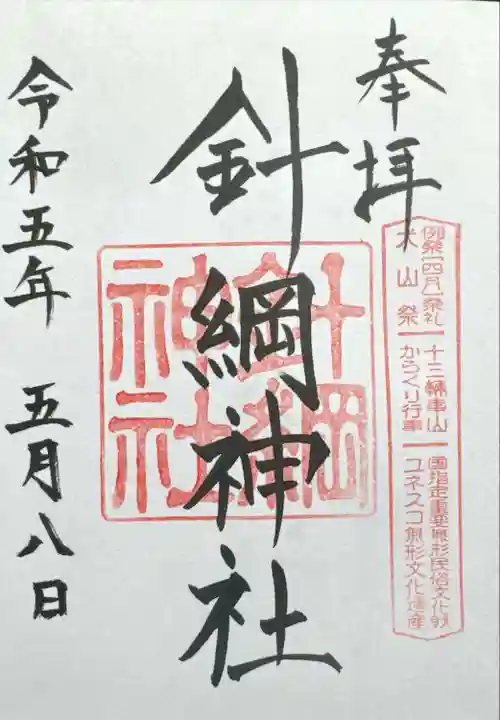 奉拝
例祭(四月)祭礼
犬山祭
十三輌車山
からくり行事
国指定重要無形民俗文化財
ユネスコ無形文化遺産
針綱神社
針綱神社
令和五年 五月八日